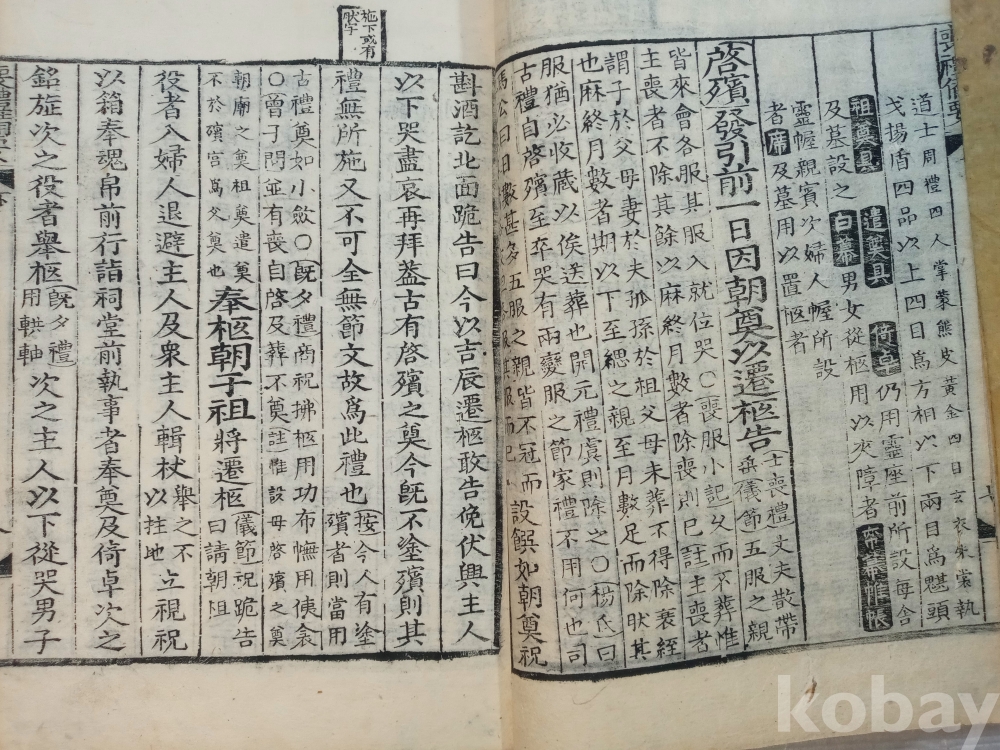 道士周禮四人掌蒙熊皮黃金四目玄衣朱裳執
戈揚盾四品以上四目爲方相以下兩目爲魌頭
祖奠具 遣奠具 倚卓 仍用靈座前所設每舍
及墓設之 白幕 男女從柩用以夾障者 帟幕帷帳
靈幄親賓次婦人幄所設
者 席 及墓用以置柩者
啓殯發引前一日因朝奠以遷柩告 士喪禮丈夫散帶
兵 儀節 五服之親
皆來會各服其服入就位哭○喪服小記久而不葬惟
主喪者不除其餘以麻終月數者除喪則已註主喪者
謂子於父母妻於夫孤孫於祖父母未葬不得除衰絰
也麻終月數者期以下至緦之親至月數足而除狀其
服猶必收藏以俟送葬也開元禮虞則除之○楊氏曰
古禮自啓殯至卒哭有兩變服之節家禮不用何也司
馬公曰日數甚多五服之親皆不冠而
設饌如朝奠祝
斟酒訖北面跪告曰今以吉辰遷柩敢告俛伏興主人
以下哭盡哀再拜盖古有啓殯之奠今旣不塗殯則其
禮無所施又不可全無節文故爲此禮也 按今人有塗
殯者則當用
古禮奠如小斂○旣夕禮商祝拂柩用功布幠用侇衾
○曾子問並有喪自啓及葬不奠註惟設母啓殯之奠
朝廟之奠祖奠遣奠
不於殯宮爲父奠也
奉柩朝于祖 將遷柩 儀節祝跪告
曰請朝祖
役者入婦人退避主人及衆主人輯杖 擧之不
以拄地 立視祝
以箱奉魂帛前行詣祠堂前執事者奉奠及倚卓次之
銘旌次之役者擧柩 旣夕禮
用輁軸 次之主人以下從哭男子
施下或有
狀字
kobay